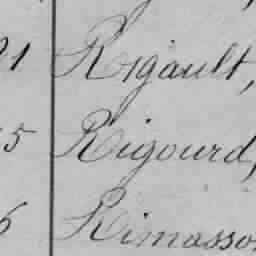 21 Rigault,
5 Rigourd,
6 Rimasson